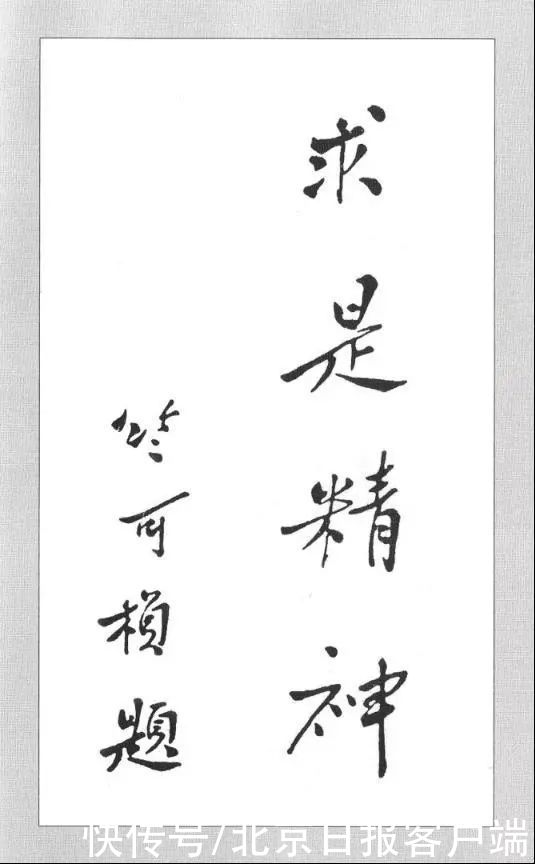 求是精神
竺可桢題
快传号/北京日报客户端